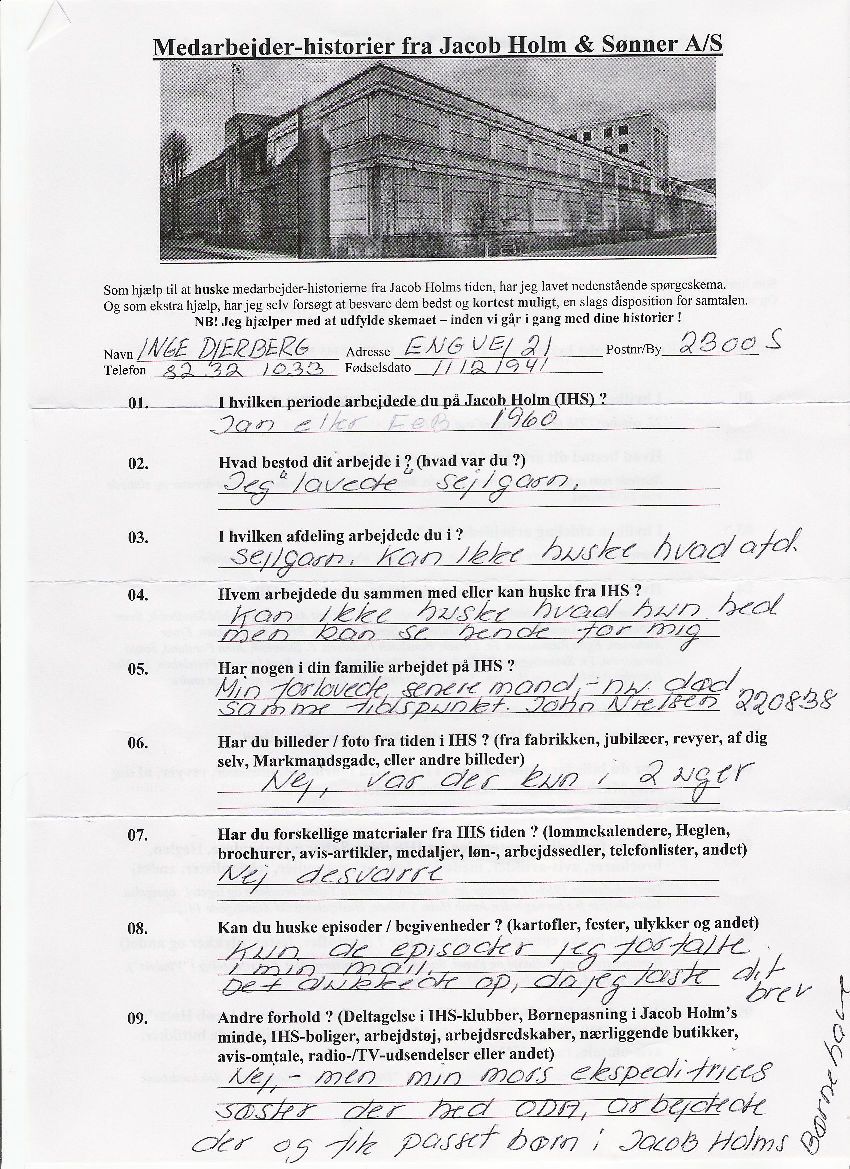 Medarbejder-historier fra Jacob Holm & Sønner A/S
Som hjælp til at huske medarbejder-historierne fra Jacob Holms tiden, har jeg lavet nedenstående spørgeskema.
Og som ekstra hjælp, har jeg selv forsøgt at besvare dem bedst og kortest muligt, en slags disposition for samtalen.
NB! Jeg hjælper med at udfylde skemaet – inden vi går i gang med dine historier !
Navn INGE DJERBERG Adresse ENGVEJ 21 Postnr/By 2300 S
Telefon 32 32 1033 Fødselsdato 11/12 1941
01. I hvilken periode arbejdede du på Jacob Holm (IHS) ?
Jan eller Feb 1960
02. Hvad bestod dit arbejde i ? (hvad var du ?)
Jeg "lavede" sejlgarn.
03. I hvilken afdeling arbejdede du i ?
Sejlgarn. Kan ikke huske hvad afd.
04. Hvem arbejdede du sammen med eller kan huske fra IHS ?
Kan ikke huske hvad hun hed
men kan se hende for mig
05. Har nogen i din familie arbejdet på IHS ?
Min forlovede, senere mand, - nu død
samme tidspunkt. John Nielsen 220838
06. Har du billeder / foto fra tiden i IHS ? (fra fabrikken, jubilæer, revyer, af dig
selv, Markmandsgade, eller andre billeder)
Nej, var der kun i 2 uger
07. Har du forskellige materialer fra IHS tiden ? (lommekalendere, Heglen,
brochurer, avis-artikler, medaljer, løn-, arbejdssedler, telefonlister, andet)
Nej desværre
08. Kan du huske episoder / begivenheder ? (kartofler, fester, ulykker og andet)
Kun de episoder jeg fortalte
i min mail.
Det dukkede op, da jeg læste dit
brev
09. Andre forhold ? (Deltagelse i IHS-klubber, Børnepasning i Jacob Holm's
minde, IHS-boliger, arbejdstøj, arbejdsredskaber, nærliggende butikker,
avis-omtale, radio-/TV-udsendelser eller andet)
Nej, - men min mors ekspeditrices
søster der hed ODA, arbejdede
der og fik passet børn i Jacob Holms
Børnehave